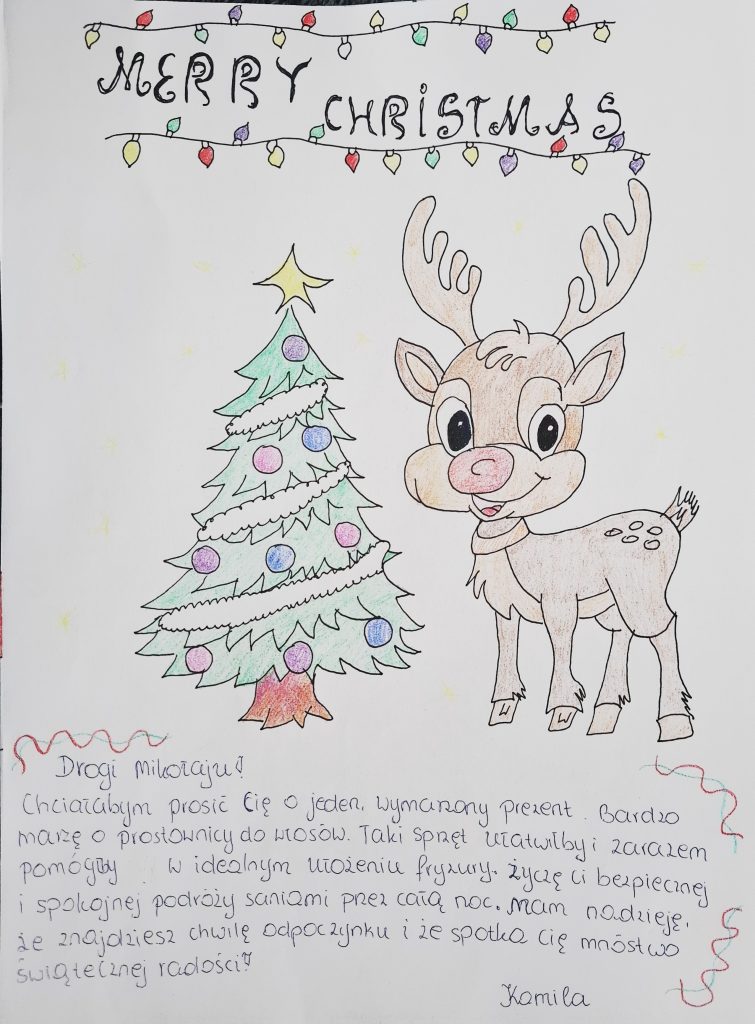 MERRY
CHRISTMAS
Drogi Mikołaju!
Chciałabym prosić Cię o jeden, wymarzony prezent. Bardzo
marzę o prostownicy do włosów. Taki sprzęt ułatwilby i zarazem
pomógłby w idealnym ułożeniu fryzury. Życzę ci bezpiecznej
i spokojnej podróży saniami przez całą noc. Mam nadzieję,
że znajdziesz chwilę odpoczynku i że spotka cię mnóstwo
świątecznej radości!
Kamila